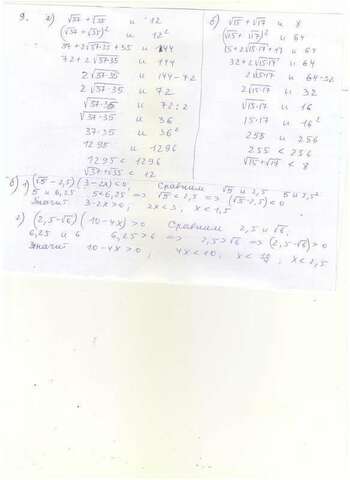 9. а) √37 + √35 и 12
(√37 + √35)² и 12²
37 + 2√37·35 + 35 и 144
72 + 2√37·35 и 144
2√37·35 и 144 - 72
2√37·35 и 72
√37·35 и 72 : 2
√37·35 и 36
37·35 и 36²
1295 и 1296
1295 < 1296
√37 + √35 < 12
б) √15 + √17 и 8
(√15 + √17)² и 64
15 + 2√15·17 + 17 и 64
32 + 2√15·17 и 64
2√15·17 и 64-32
2√15·17 и 32
√15·17 и 16
15·17 и 16²
255 и 256
255 < 256
√15 + √17 < 8
в) 1) (√5 - 2,5)(3-2x) < 0, Сравним √5 и 2,5 5 и 2,5²
5 и 6,25 5 < 6,25 ⇒ √5 < 2,5 ⇒ (√5-2,5) < 0
Значит 3-2x > 0; 2x < 3; x < 1,5
г) (2,5-√6)(10-4x) > 0 Сравним 2,5 и √6;
6,25 и 6 6,25 > 6 ⇒ 2,5 > √6 ⇒ (2,5-√6) > 0
Значит 10-4x > 0; 4x < 10; x < ; x < 2,5